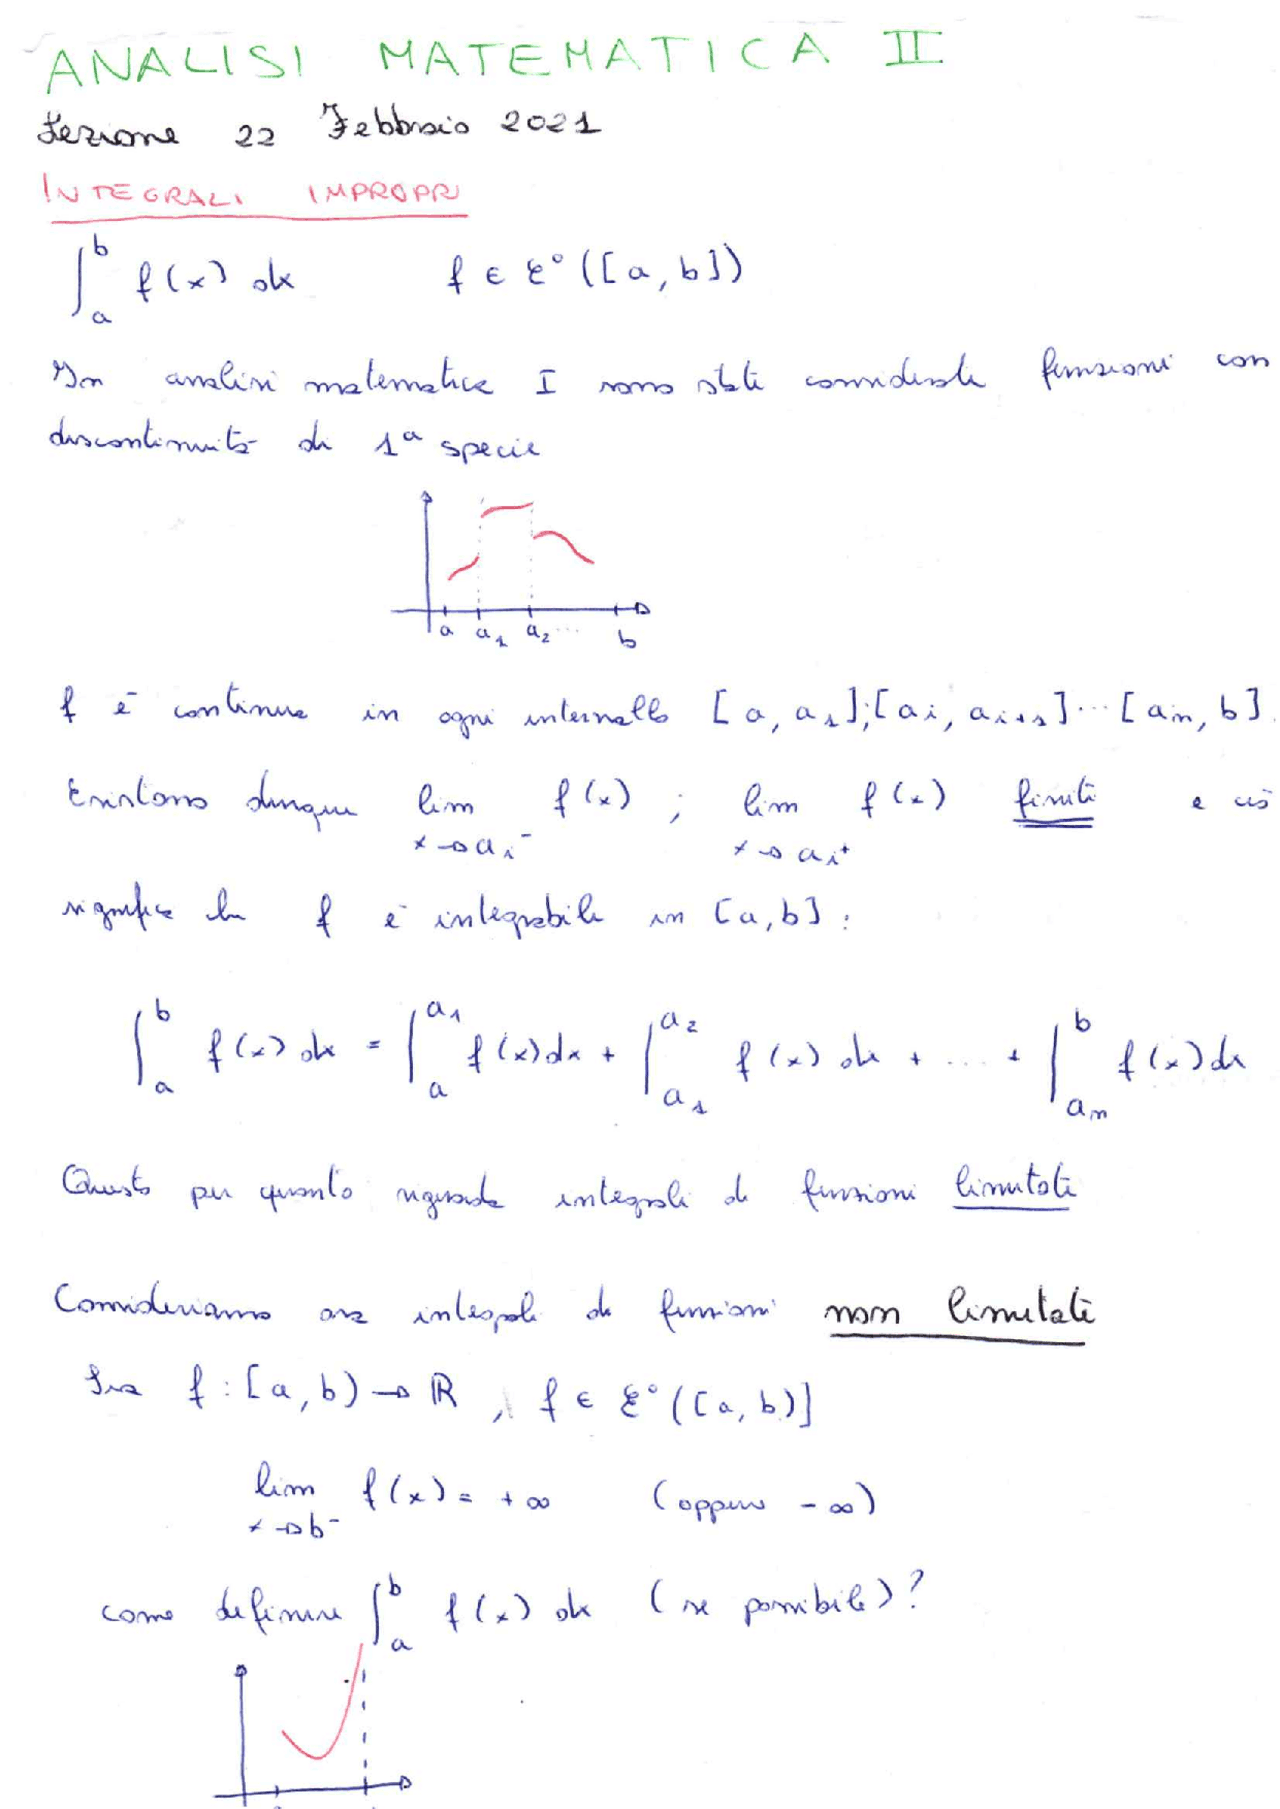 ANALISI MATEMATICA II
Lezione 22 Febbraio 2021
INTEGRALI IMPROPRI
∫_a^b f(x) dx f ∈ C°([a, b])
In analisi matematica I sono state considerate funzioni con
discontinuità di 1ª specie
a a₁ a₂ ... b
f è continua in ogni intervallo [a, a₁];[aᵢ, aᵢ₊₁]...[aₙ, b].
Esistono dunque lim_{x→aᵢ⁻} f(x) ; lim_{x→aᵢ⁺} f(x) finiti e ciò
significa che f è integrabile in [a,b] :
∫_a^b f(x) dx = ∫_a^{a₁} f(x)dx + ∫_{a₁}^{a₂} f(x) dx + .... + ∫_{aₙ}^b f(x)dx
Questo per quanto riguarda integrali di funzioni limitate
Consideriamo ora integrali di funzioni non limitate
Sia f : [a, b) → ℝ , f ∈ C°([a, b)]
lim_{x→b⁻} f(x) = +∞ (oppure -∞)
come definire ∫_a^b f(x) dx (se possibile)?